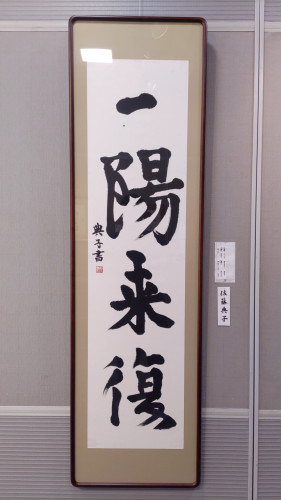 一陽来復
典子書
佐藤典子